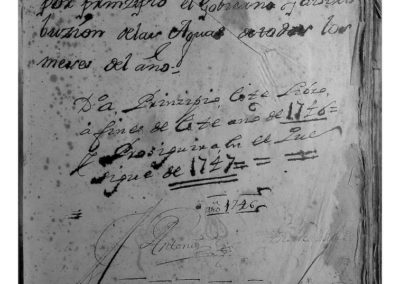 por principio el Gobierno y distri
buzion de las Aguas de todos los
meses del año.
Da, Principio, este Libro,
á fines de este año de 1746=
y Proseguirá en el que
sigue de 1747= = =
1746
Antonio